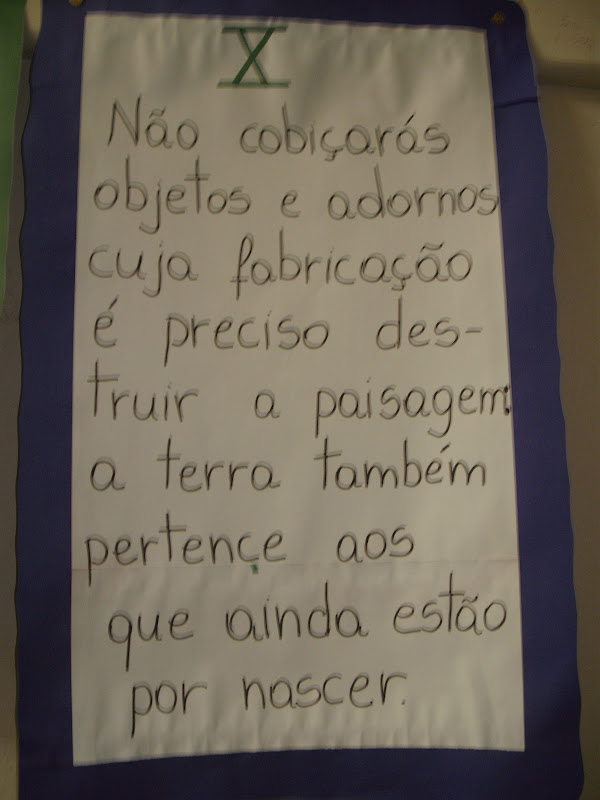 X
Não cobiçarás
objetos e adornos
cuja fabricação
é preciso des-
truir a paisagem:
a terra também
pertençe aos
que ainda estão
por nascer.